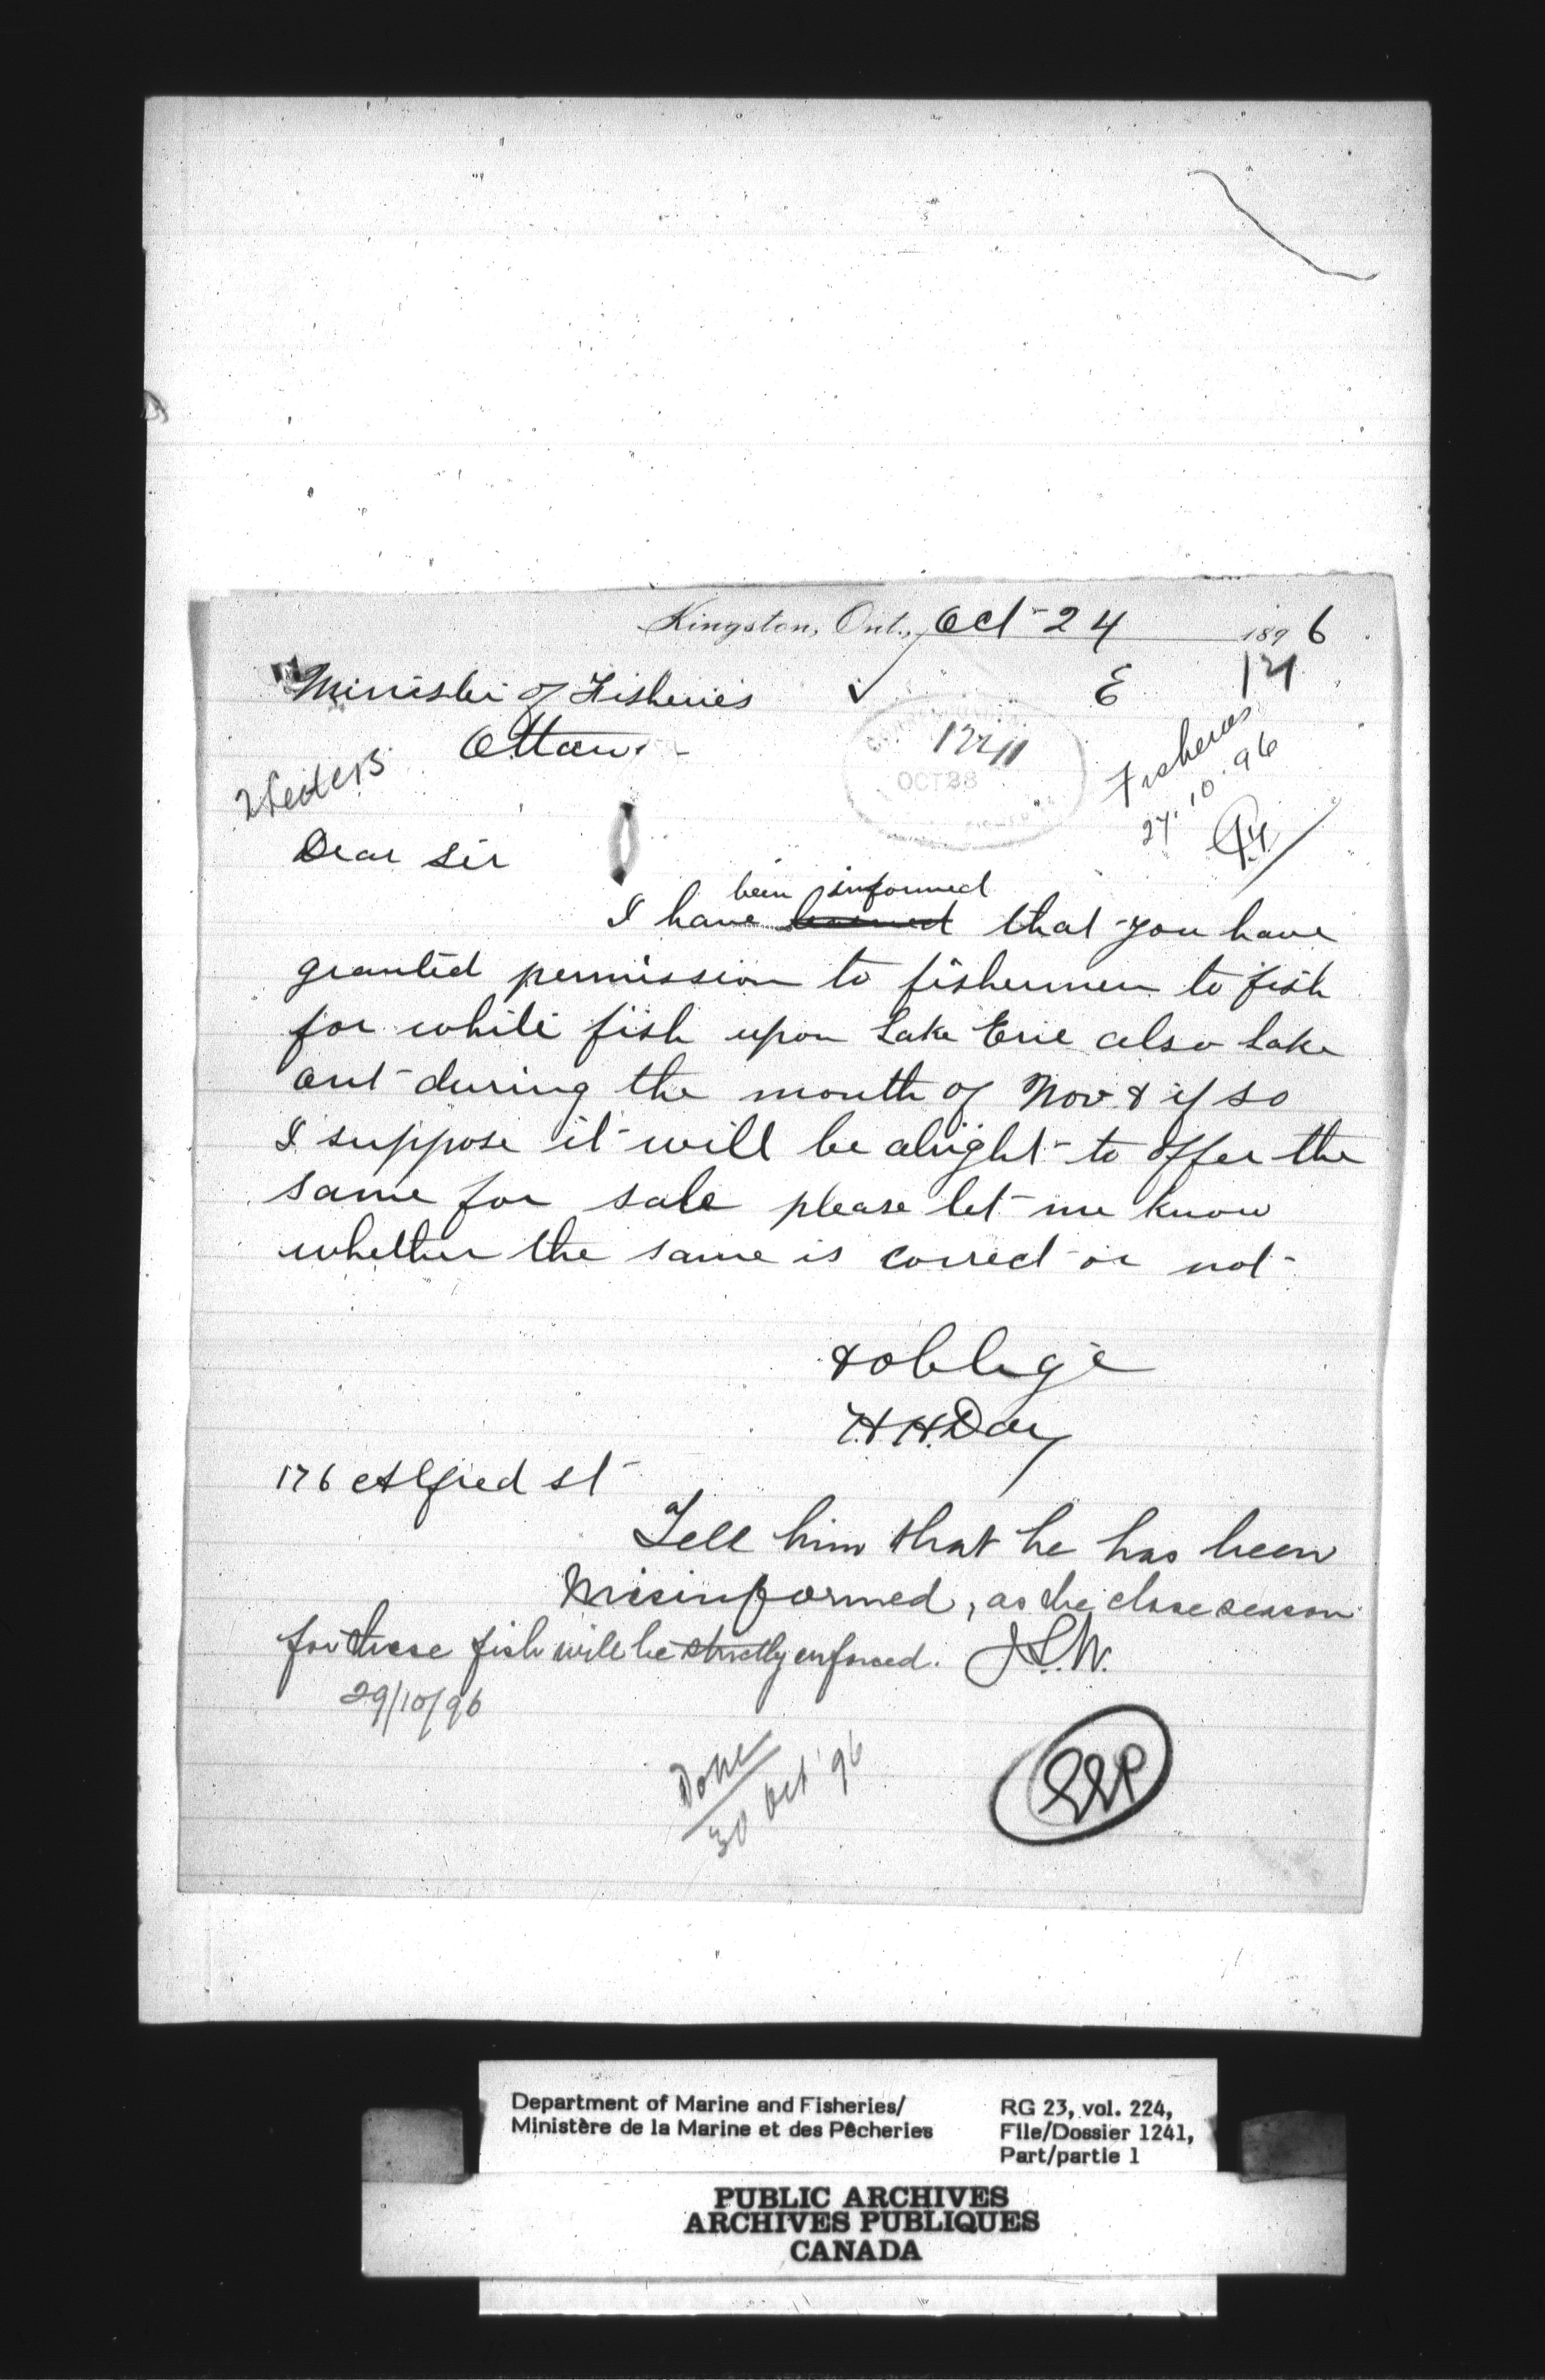 Kingston, Ont., Oct 24 1896
Minister of Fisheries
E 121
Ottawa
1241
OCT 28
Fisheries
27.10.96
Dear Sir
been informed
I have learned that you have
granted permission to fishermen to fish
for white fish upon Lake Erie also Lake
Ont during the month of Nov & if so
I suppose it will be alright to offer the
same for sale please let me know
whether the same is correct or not
& oblige
H.H. Day
176 Alfred St
Tell him that he has been
misinformed, as the close season
for these fish will be strictly enforced. J.L.W.
29/10/96
Done
30 Oct '96
Department of Marine and Fisheries/
Ministère de la Marine et des Pêcheries
RG 23, vol. 224,
File/Dossier 1241,
Part/partie 1
PUBLIC ARCHIVES
ARCHIVES PUBLIQUES
CANADA